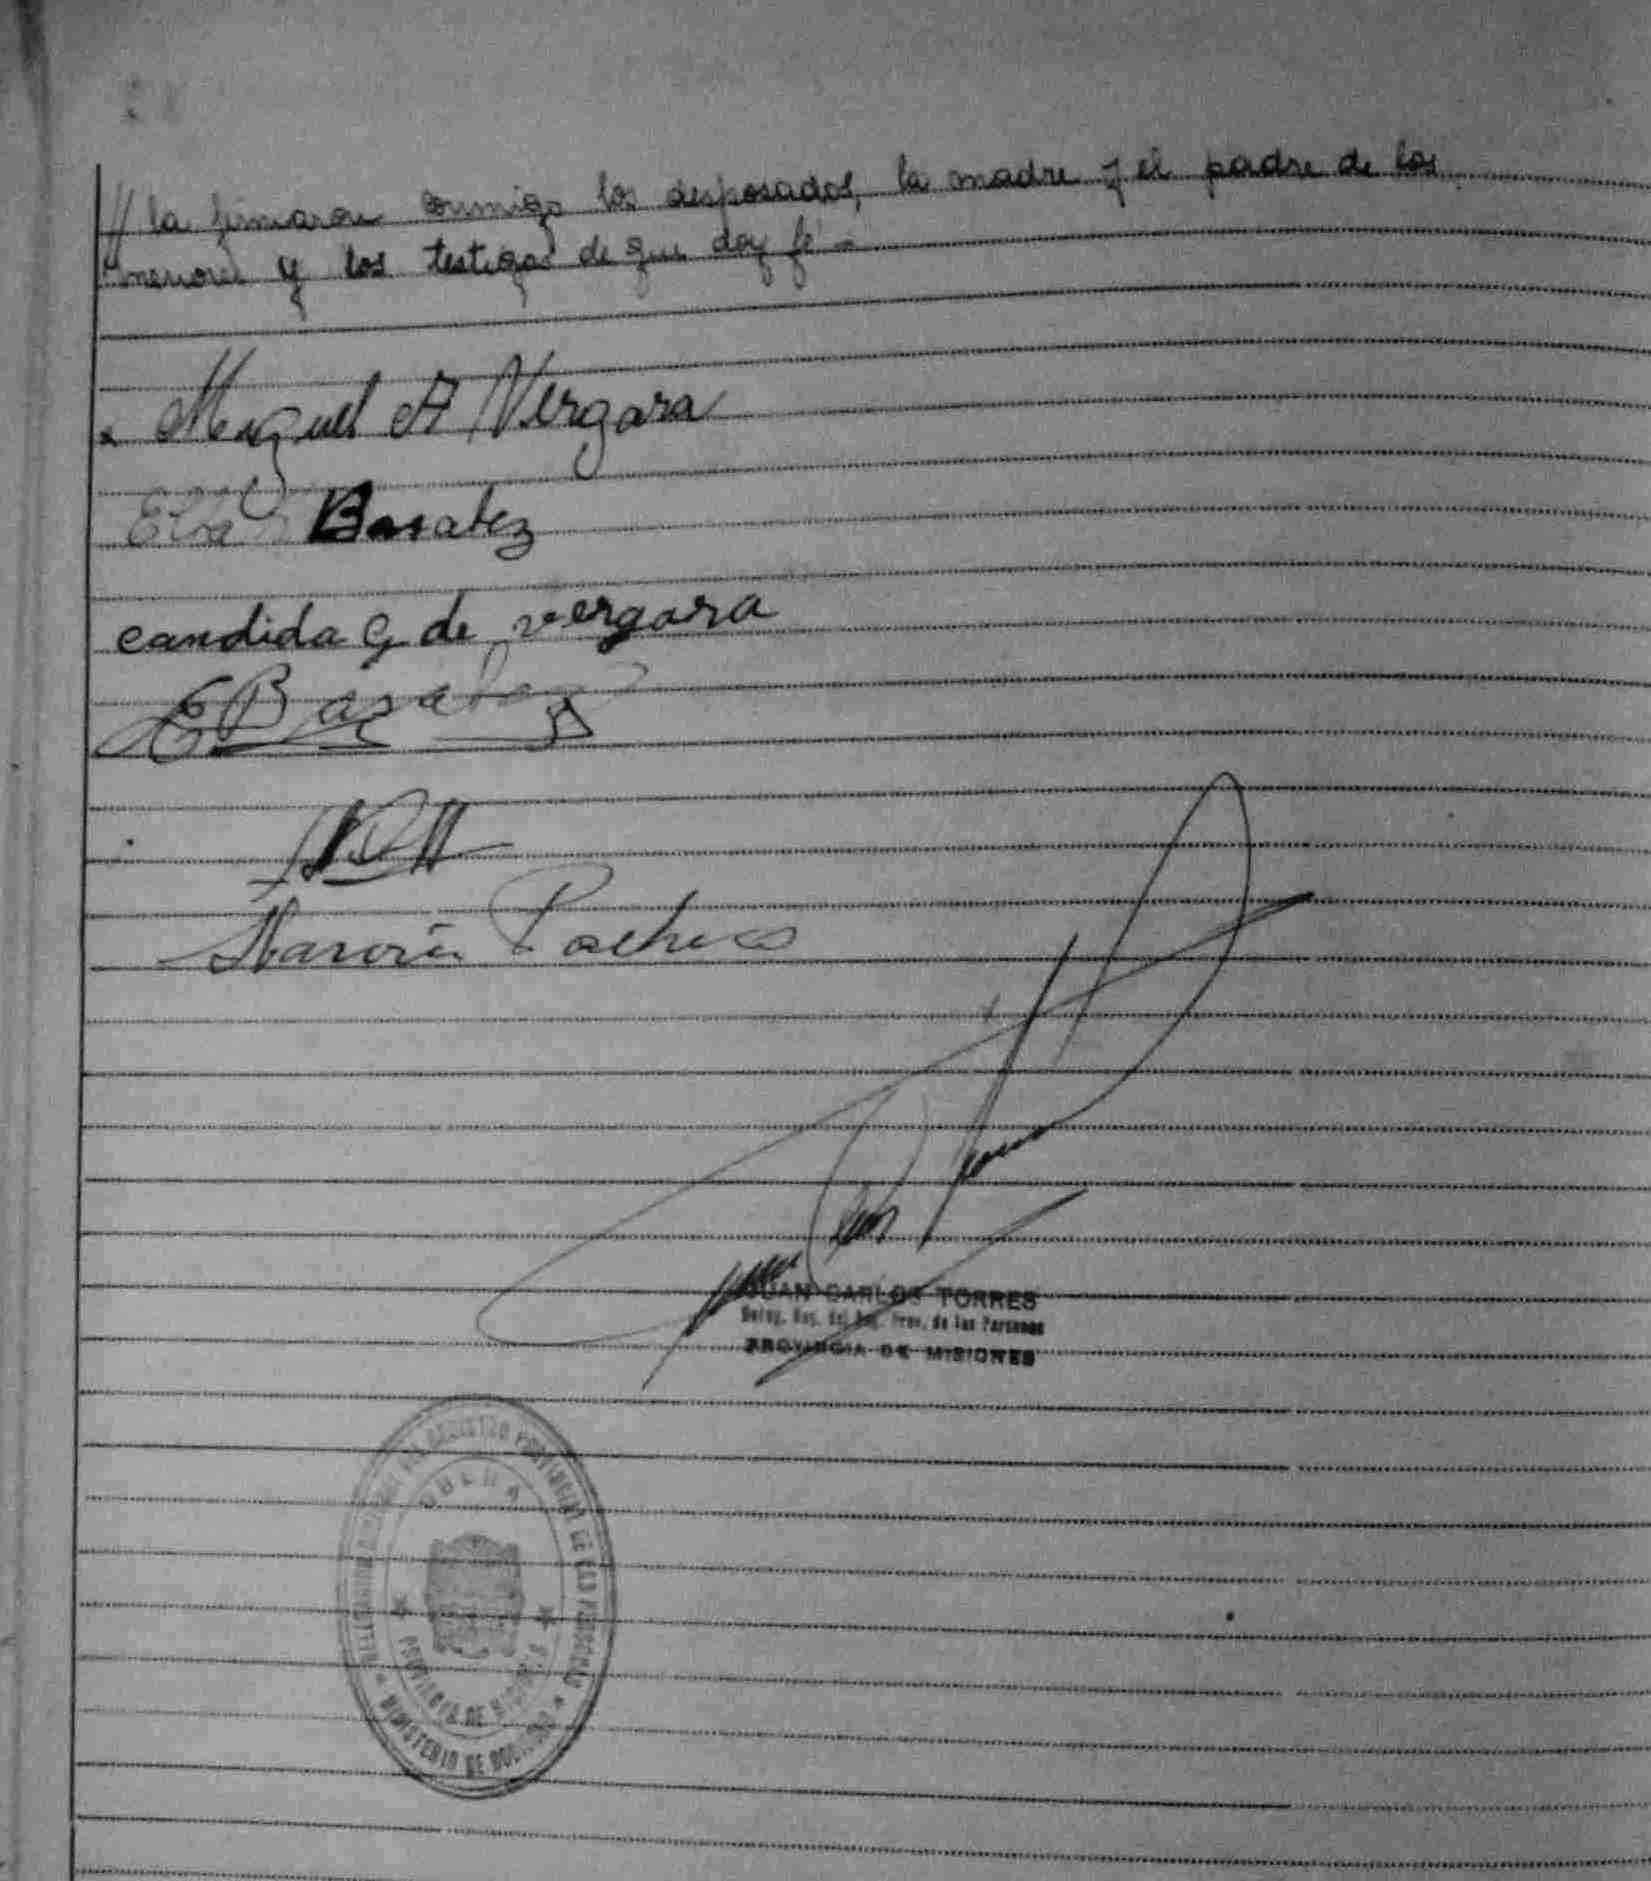 // la firmaron conmigo los desposados, la madre y el padre de los
menores y los testigos de que doy fé -
Miguel A Vergara
Elsa Basabez
candida G de vergara
E Basabez
Pacheco
JUAN CARLOS TORRES
Prov. de las Personas
PROVINCIA DE MISIONES
REGISTRO PROVINCIAL DE LAS PERSONAS
OBERA
PROVINCIA DE MISIONES
MINISTERIO DE GOBIERNO